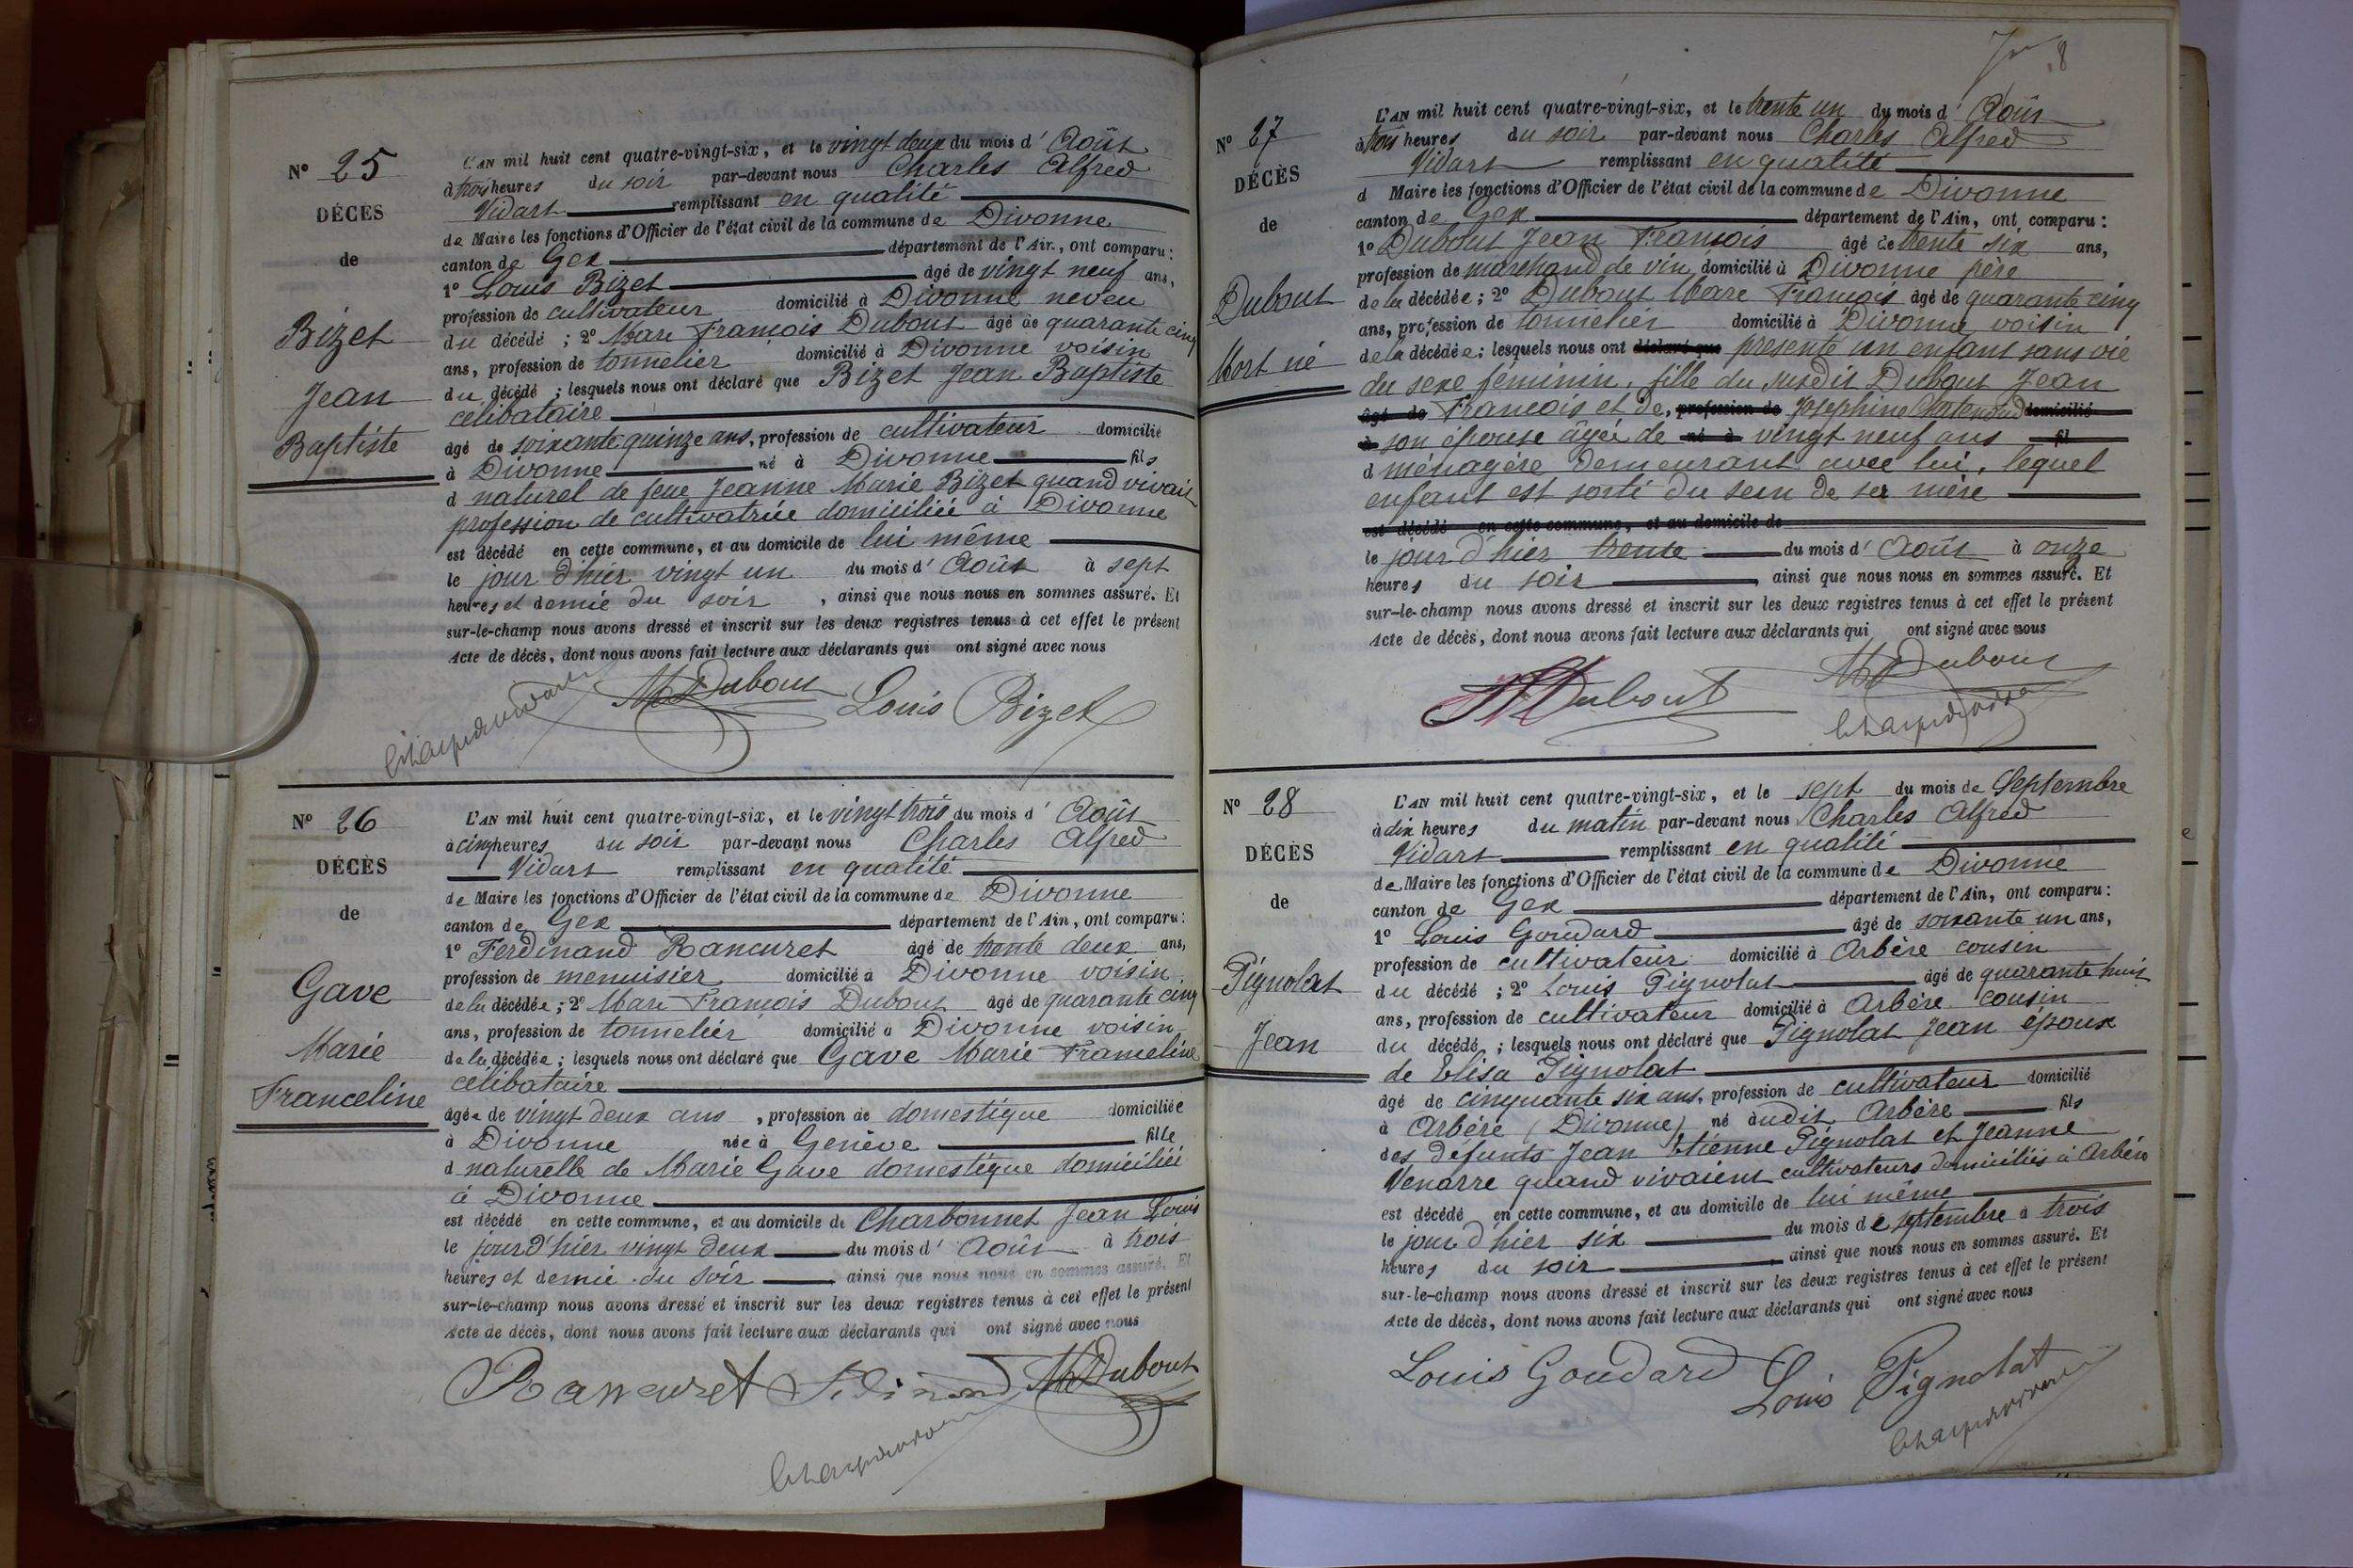 Nº 25
DÉCÈS
de
Bizet
Jean
Baptiste
L'AN mil huit cent quatre-vingt-six, et le vingt deux du mois d' Août
à trois heures du soir par-devant nous Charles Alfred
Vidart remplissant en qualité
de Maire les fonctions d'Officier de l'état civil de la commune de Divonne
canton de Gex département de l'Ain, ont comparu :
1º Louis Bizet âgé de vingt neuf ans,
profession de cultivateur domicilié à Divonne neveu
du décédé ; 2º Marc François Dubout âgé de quarante cinq
ans, profession de tonnelier domicilié à Divonne voisin
du décédé ; lesquels nous ont déclaré que Bizet Jean Baptiste
célibataire
âgé de soixante quinze ans, profession de cultivateur domicilié
à Divonne né à Divonne fils
d naturel de feue Jeanne Marie Bizet quand vivait
profession de cultivatrice domiciliée à Divonne
est décédé en cette commune, et au domicile de lui même
le jour d'hier vingt un du mois d' Août à sept
heures et demie du soir, ainsi que nous nous en sommes assuré. Et
sur-le-champ nous avons dressé et inscrit sur les deux registres tenus à cet effet le présent
Acte de décès, dont nous avons fait lecture aux déclarants qui ont signé avec nous
MDubout Louis Bizet
Nº 26
DÉCÈS
de
Gave
Marie
Franceline
L'AN mil huit cent quatre-vingt-six, et le vingt trois du mois d' Août
à cinq heures du soir par-devant nous Charles Alfred
Vidart remplissant en qualité
de Maire les fonctions d'Officier de l'état civil de la commune de Divonne
canton de Gex département de l'Ain, ont comparu :
1º Ferdinand Rancuret âgé de trente deux ans,
profession de menuisier domicilié à Divonne voisin
de la décédée ; 2º Marc François Dubout âgé de quarante cinq
ans, profession de tonnelier domicilié à Divonne voisin
de la décédée ; lesquels nous ont déclaré que Gave Marie Franceline
célibataire
âgée de vingt deux ans, profession de domestique domiciliée
à Divonne née à Genève fille
d naturelle de Marie Gave domestique domiciliée
à Divonne
est décédé en cette commune, et au domicile de Charbonnet Jean Louis
le jour d'hier vingt deux du mois d' Août à trois
heures et demie du soir ainsi que nous nous en sommes assuré. Et
sur-le-champ nous avons dressé et inscrit sur les deux registres tenus à cet effet le présent
Acte de décès, dont nous avons fait lecture aux déclarants qui ont signé avec nous
Rancuret MDubout
8
Nº 27
DÉCÈS
de
Dubout
Mort né
L'AN mil huit cent quatre-vingt-six, et le trente un du mois d' Août
à trois heures du soir par-devant nous Charles Alfred
Vidart remplissant en qualité
d Maire les fonctions d'Officier de l'état civil de la commune de Divonne
canton de Gex département de l'Ain, ont comparu :
1º Dubout Jean François âgé de trente six ans,
profession de marchand de vin domicilié à Divonne père
de la décédée ; 2º Dubout Marc François âgé de quarante cinq
ans, profession de tonnelier domicilié à Divonne voisin
de la décédée ; lesquels nous ont déclaré que présenté un enfant sans vie
du sexe féminin, fille du susdit Dubout Jean
âgé de François et de, profession de Joséphine domicilié
à son épouse âgée de né à vingt neuf ans fil
d ménagère demeurant avec lui, lequel
enfant est sorti du sein de ser mère
est décédé en cette commune, et au domicile de
le jour d'hier trente du mois d' Août à onze
heures du soir ainsi que nous nous en sommes assuré. Et
sur-le-champ nous avons dressé et inscrit sur les deux registres tenus à cet effet le présent
Acte de décès, dont nous avons fait lecture aux déclarants qui ont signé avec nous
Dubout MDubout
Nº 28
DÉCÈS
de
Pignolat
Jean
L'AN mil huit cent quatre-vingt-six, et le sept du mois de Septembre
à dix heures du matin par-devant nous Charles Alfred
Vidart remplissant en qualité
de Maire les fonctions d'Officier de l'état civil de la commune de Divonne
canton de Gex département de l'Ain, ont comparu :
1º Louis Goudard âgé de soixante un ans,
profession de cultivateur domicilié à Arbère cousin
du décédé ; 2º Louis Pignolat âgé de quarante huit
ans, profession de cultivateur domicilié à Arbère cousin
du décédé ; lesquels nous ont déclaré que Pignolat Jean époux
de Elisa Pignolat
âgé de cinquante six ans, profession de cultivateur domicilié
à Arbère (Divonne) né audit Arbère fils
des défunts Jean Etienne Pignolat et Jeanne
Venarre quand vivaient cultivateurs domiciliés à Arbère
est décédé en cette commune, et au domicile de lui même
le jour d'hier six du mois de septembre à trois
heures du soir ainsi que nous nous en sommes assuré. Et
sur-le-champ nous avons dressé et inscrit sur les deux registres tenus à cet effet le présent
Acte de décès, dont nous avons fait lecture aux déclarants qui ont signé avec nous
Louis Goudard Louis Pignolat